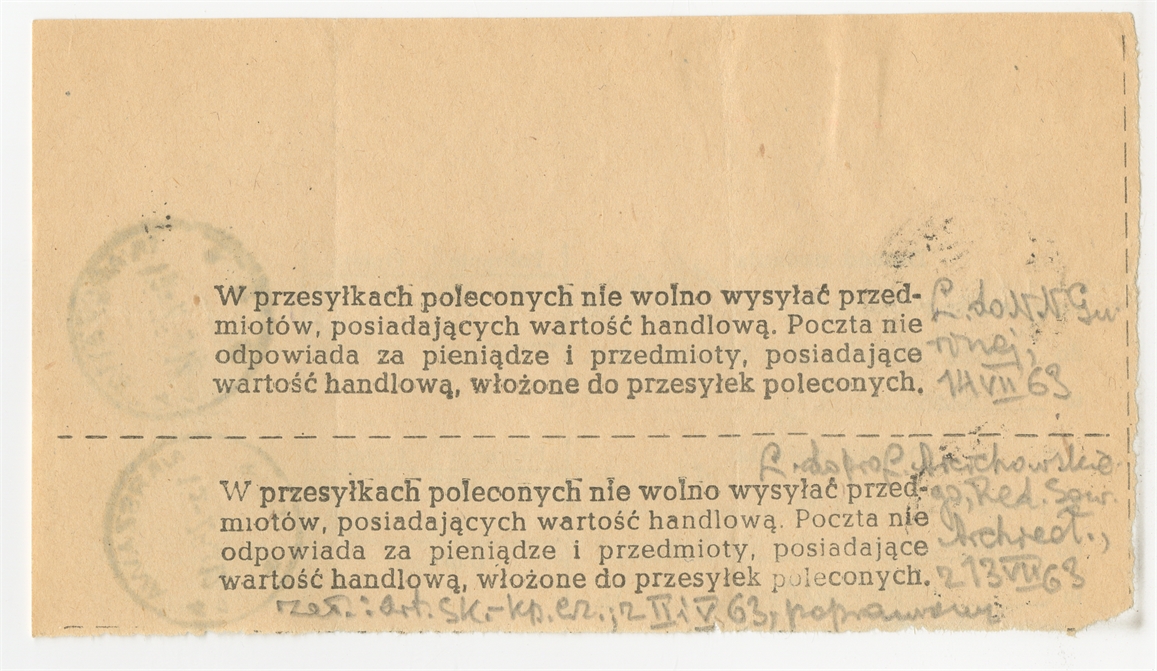 W przesyłkach poleconych nie wolno wysyłać przed-
miotów, posiadających wartość handlową. Poczta nie
odpowiada za pieniądze i przedmioty, posiadające
wartość handlową, włożone do przesyłek poleconych.
L. do N N Gu-
rinej,
14 VII 63
L. do prof. Arcichowskie-
go, Red. Sow.
Archeol.,
z 13 VII 63
W przesyłkach poleconych nie wolno wysyłać przed-
miotów, posiadających wartość handlową. Poczta nie
odpowiada za pieniądze i przedmioty, posiadające
wartość handlową, włożone do przesyłek poleconych.
zał.: art. Sk.-kp. cz., z II i V 63, poprawiony